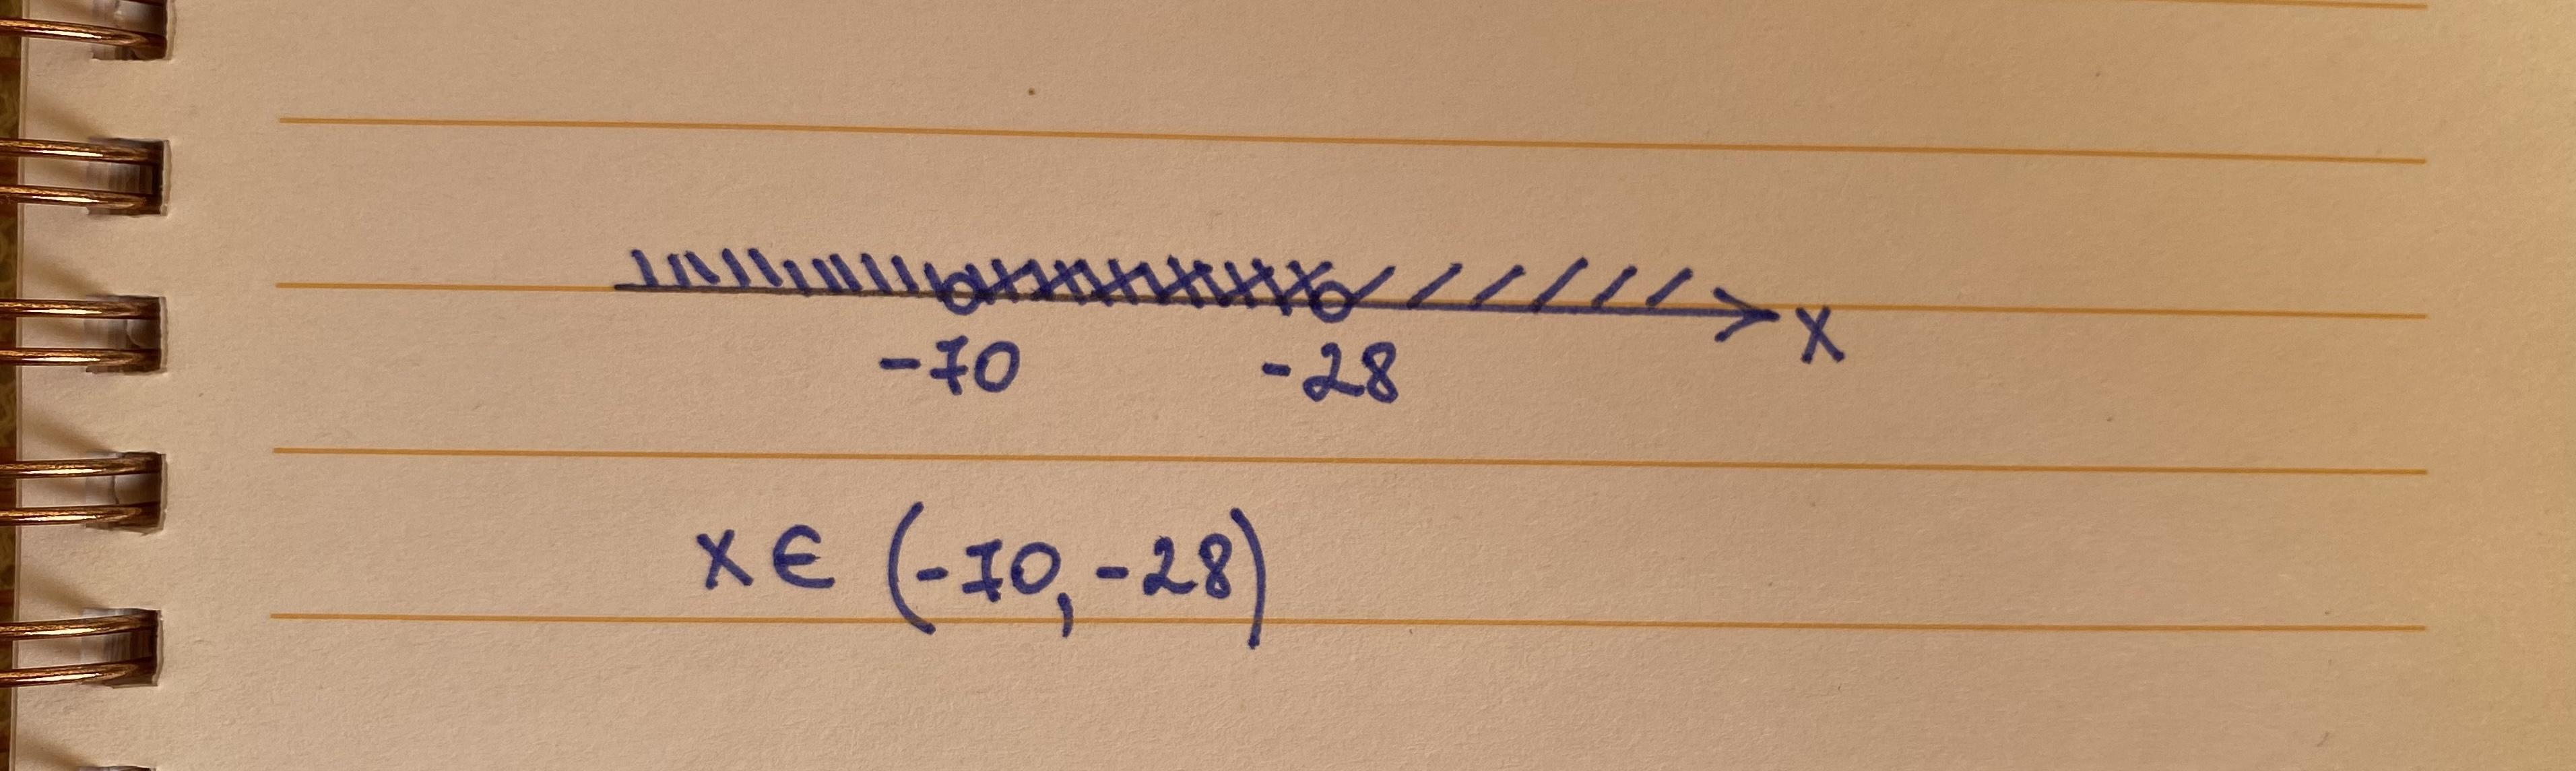 -70 -28 x
x ∈ (-70, -28)